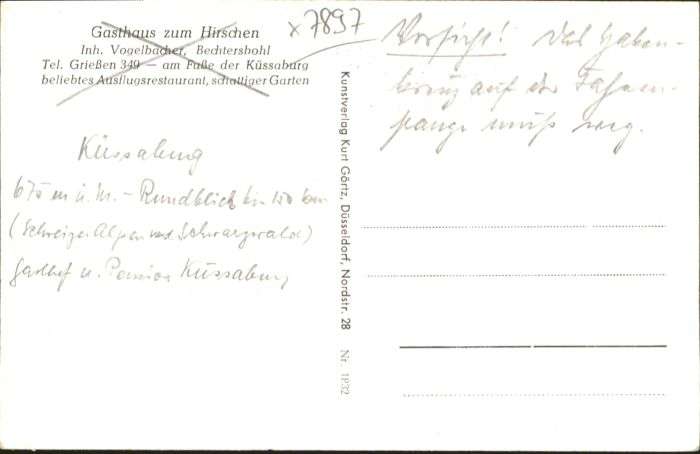 Gasthaus zum Hirschen
Inh. Vogelbacher, Bechtersbohl
Tel. Grießen 349 — am Fuße der Küssaburg
beliebtes Ausflugsrestaurant, schattiger Garten
x 7897
Vorsicht! Das Haken-
kreuz auf der Fahnen-
stange muß weg.
Küssaburg
675 m ü. M. - Rundblick bis 150 km
(Schweizer Alpen und Schwarzwald)
Gasthof u. Pension Küssaburg
Kunstverlag Kurt Görtz, Düsseldorf, Nordstr. 28
Nr. 1P32